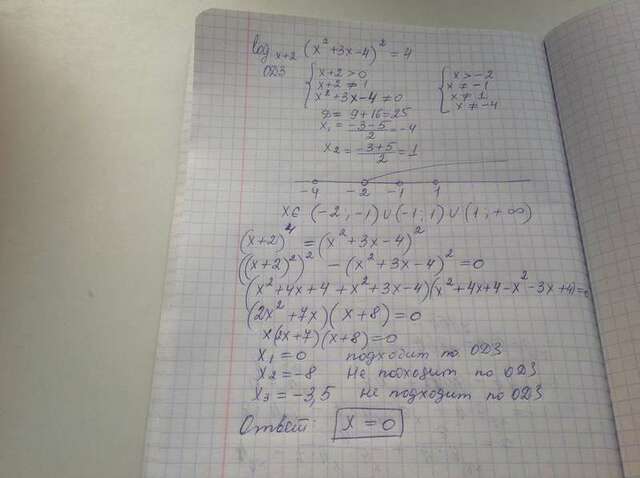 log x+2 (x²+3x-4)² = 4
ОДЗ { x+2 > 0 { x > -2
x+2 ≠ 1 x ≠ -1
x²+3x-4 ≠ 0 x ≠ 1
x ≠ -4
D = 9+16 = 25
x₁ = (-3-5)/2 = -4
x₂ = (-3+5)/2 = 1
-4 -2 -1 1
x∈ (-2; -1) ∪ (-1; 1) ∪ (1; +∞)
(x+2)⁴ = (x²+3x-4)²
((x+2)²)² - (x²+3x-4)² = 0
(x²+4x+4+x²+3x-4)(x²+4x+4-x²-3x+4)=0
(2x²+7x)(x+8) = 0
x(2x+7)(x+8) = 0
x₁ = 0 подходит по ОДЗ
x₂ = -8 Не подходит по ОДЗ
x₃ = -3,5 Не подходит по ОДЗ
Ответ: x = 0